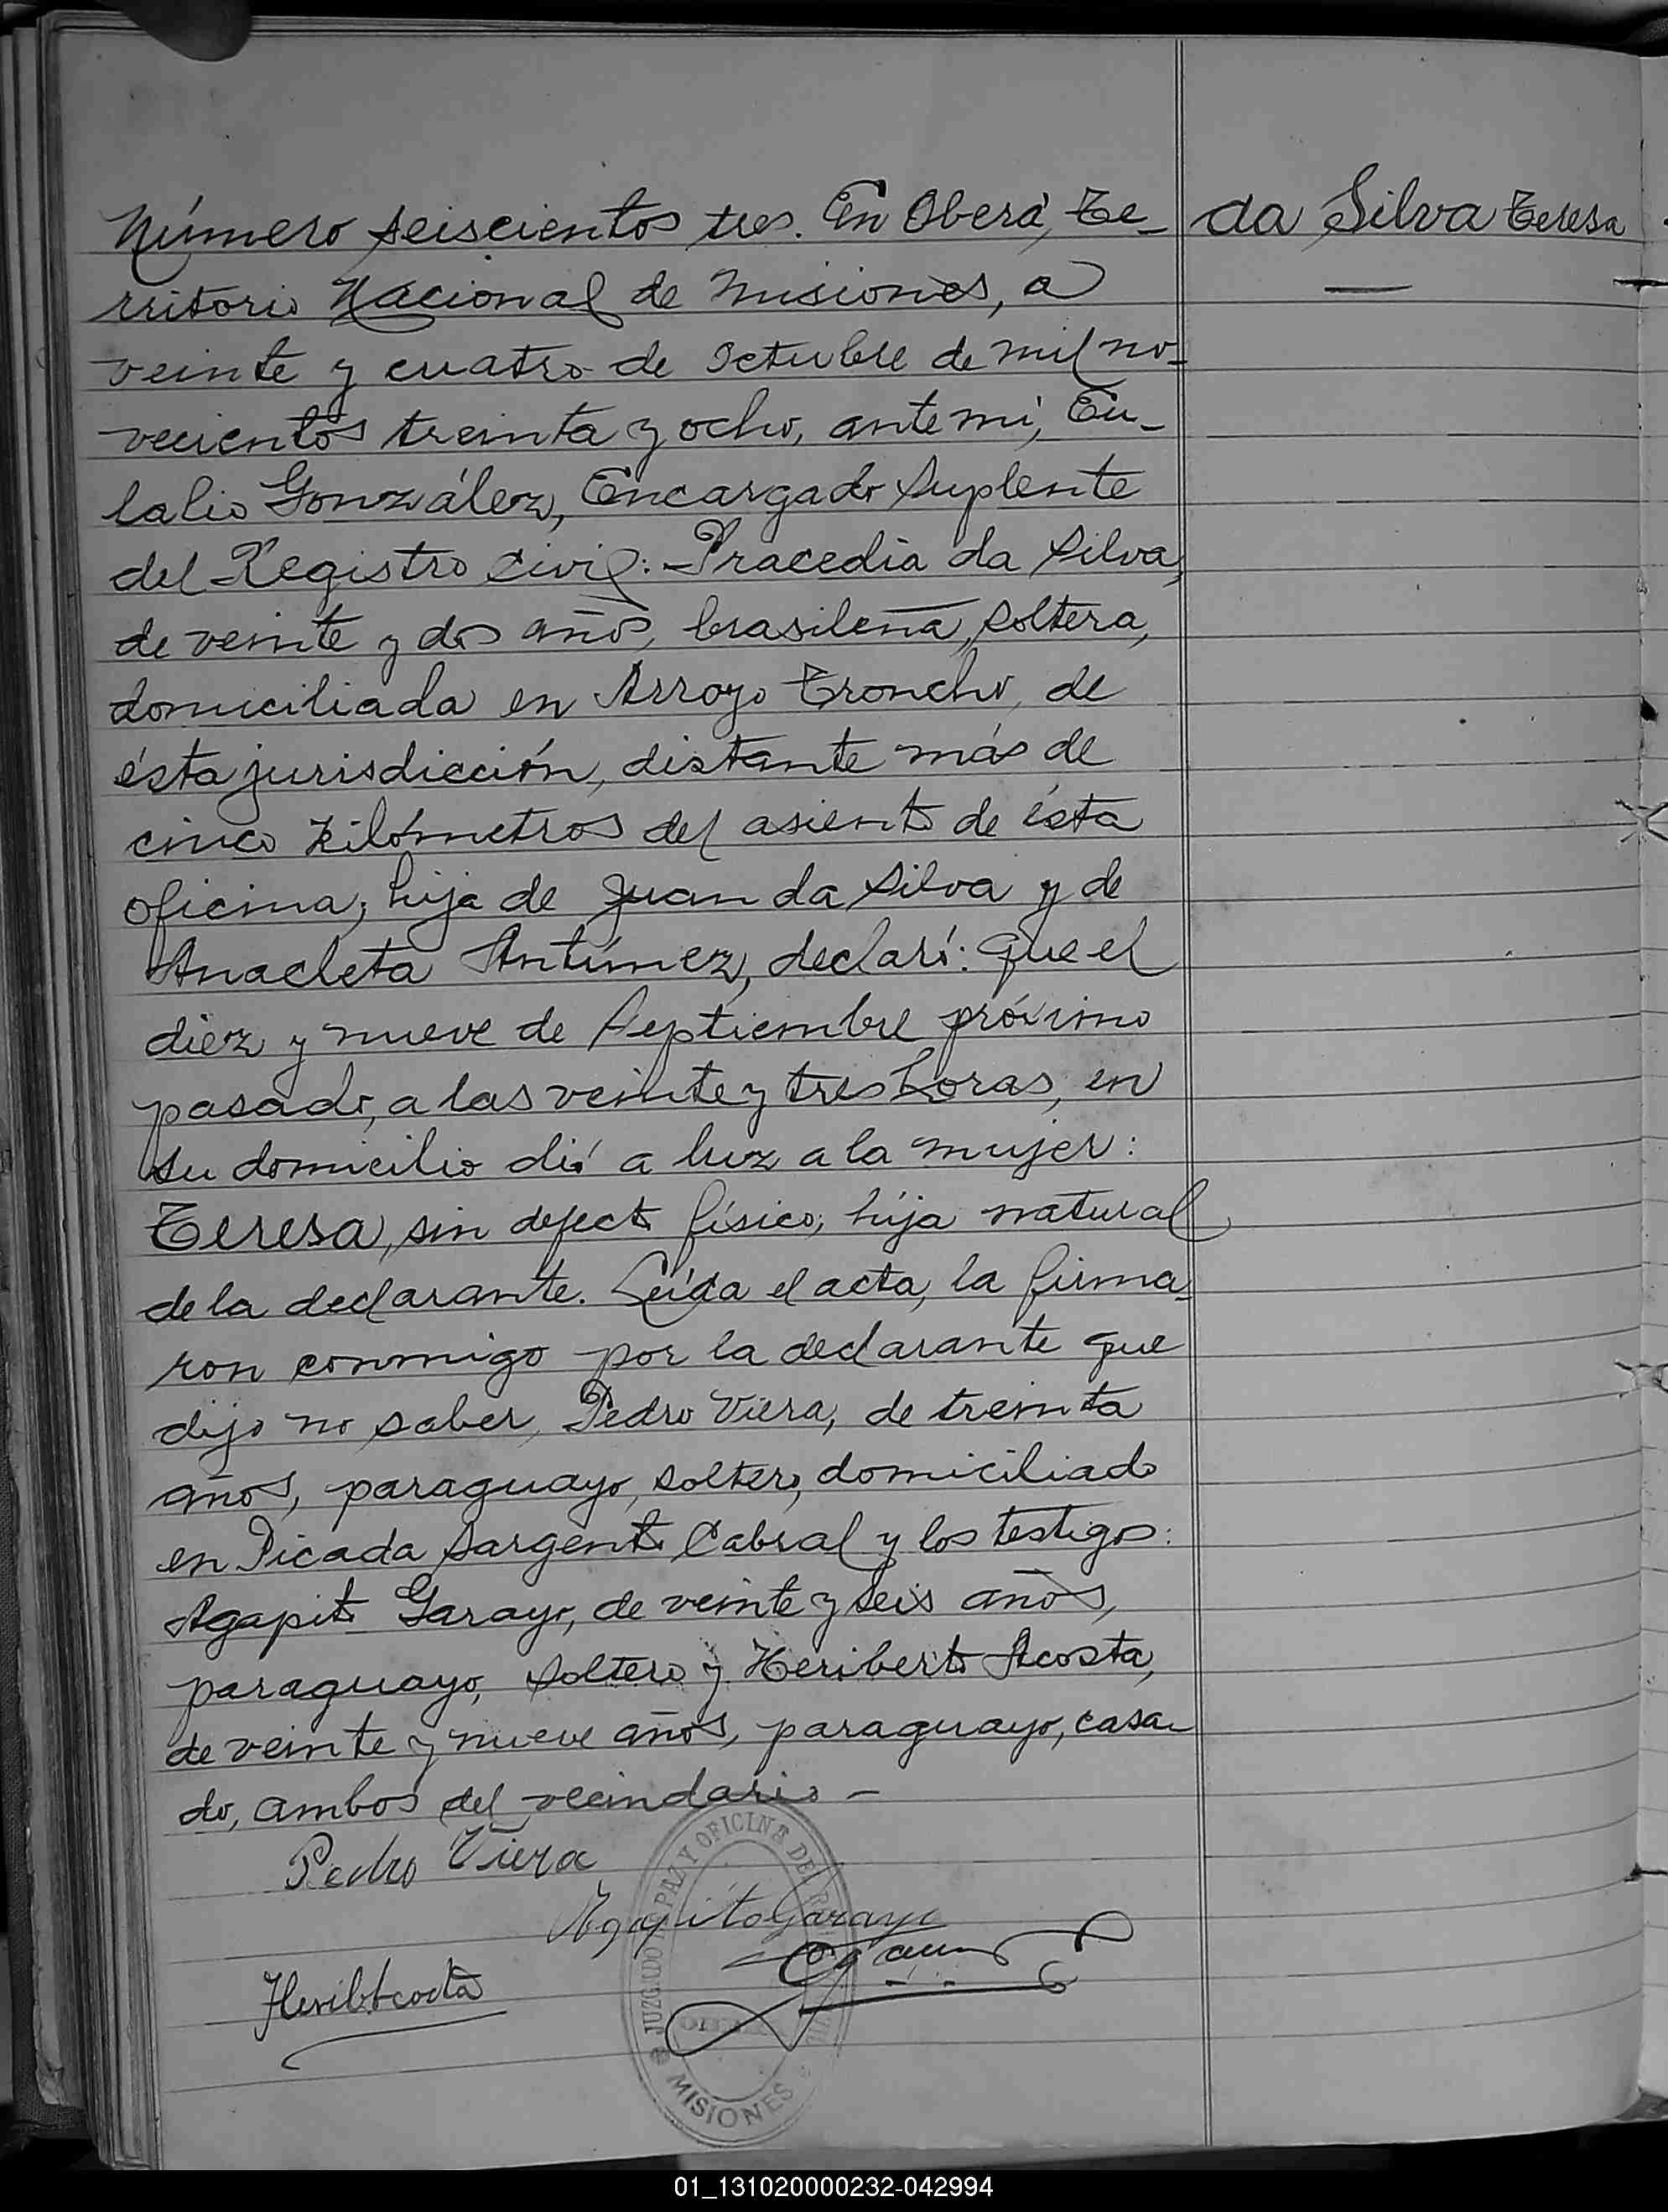 Número seiscientos tres. En Oberá, Te-
da Silva Teresa
rritorio Nacional de Misiones, a
veinte y cuatro de Octubre de mil no-
vecientos treinta y ocho, ante mí, Eu-
lalio González, Encargado Suplente
del Registro Civil: Pracedia da Silva,
de veinte y dos años, brasileña, soltera,
domiciliada en Arroyo Troncho, de
ésta jurisdicción, distante más de
cinco kilómetros del asiento de ésta
oficina; hija de Juan da Silva y de
Anacleta Antúnez, declaró: Que el
diez y nueve de Septiembre próximo
pasado, a las veinte y tres horas, en
su domicilio dió a luz a la mujer:
Teresa, sin defecto físico; hija natural
de la declarante. Leída el acta, la firma-
ron conmigo por la declarante que
dijo no saber, Pedro Viera, de treinta
años, paraguayo, soltero, domiciliado
en Picada Sargento Cabral y los testigos:
Agapito Garayo, de veinte y seis años,
paraguayo, soltero y Heriberto Acosta,
de veinte y nueve años, paraguayo, casa-
do, ambos del vecindario -
Pedro Viera
Agapito Garayo
JUZGADO DE PAZ Y OFICINA DEL
MISIONES
01_131020000232-042994